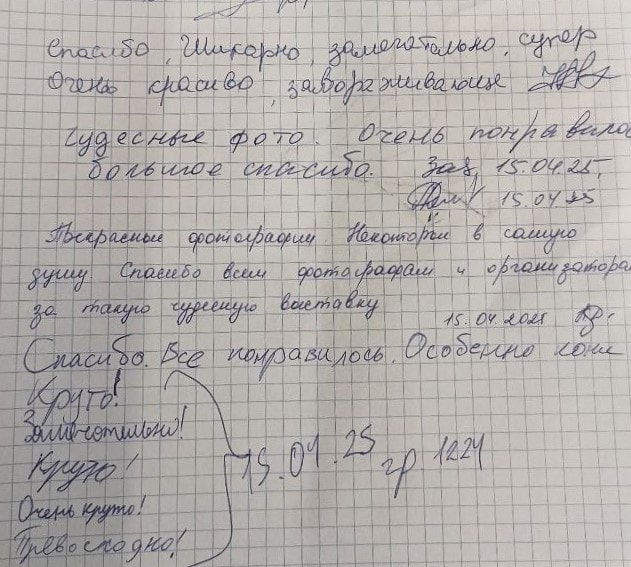 Спасибо, Шикарно, замечательно, супер
Очень красиво, завораживающе
Чудесные фото. Очень понравилос
большое спасибо. 15.04.25.
15.04.25
Прекрасные фотографии. Некоторые в самую
душу Спасибо всем фотографам и организатора
за такую чудесную выставку
15.04.2025
Спасибо. Все понравилось. Особенно кони
Круто!
Замечательно!
Круто!
15.04.25 гр. 1224
Очень круто!
Превосходно!